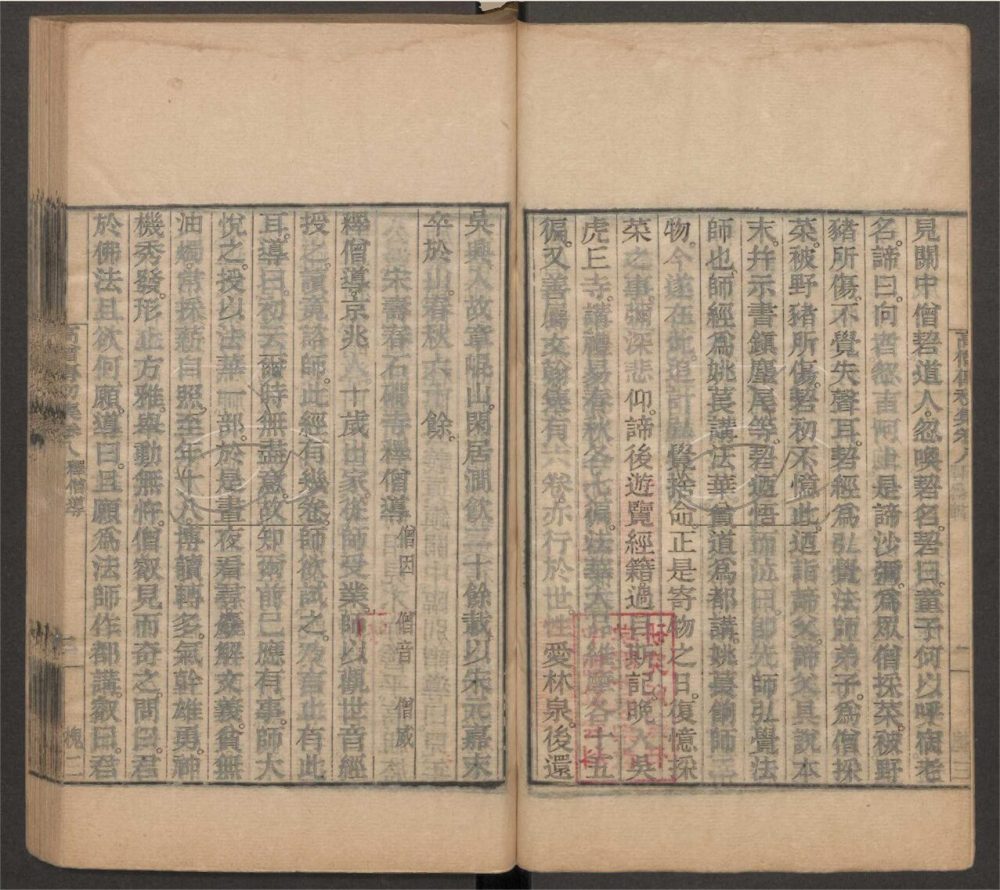 見關中僧䂮道人忽喚䂮名䂮曰童子何以呼宿老
名諦曰向者忽言阿上是諦沙彌為眾僧採菜被野
豬所傷不覺失聲耳䂮經為弘覺法師弟子為僧採
菜被野豬所傷䂮初不憶此迺詣諦父諦父具說本
末幷示書鎮麈尾等䂮迺悟而泣曰即先師弘覺法
師也師經為姚萇講法華䂮道為都講姚萇餉師二
物今遂在此追計弘覺捨命正是寄物之日復憶採
菜之事彌深悲仰諦後遊覽經籍過目斯記晚入吳
虎丘寺講禮易春秋各七徧法華大品維摩各十五
徧又善屬文翰集有六卷亦行於世性愛林泉後還
吳興入故章崐山閑居澗飲二十餘載以宋元嘉末
卒於山春秋六十餘
宋壽春石磵寺釋僧導 僧因 僧音 僧威
釋僧導京兆人十歲出家從師受業師以觀世音經
授之讀竟諮師此經有幾卷師欲試之乃言止有此
耳導曰初云爾時無盡意故知爾前已應有事師大
悅之授以法華一部於是晝夜看尋麤解文義貧無
油燭常採薪自照至年十八博讀轉多氣幹雄勇神
機秀發形止方雅舉動無忤僧叡見而奇之問曰君
於佛法且欲何願導曰且願為法師作都講叡曰君
高僧傳初集卷八 釋僧導 三 槐二